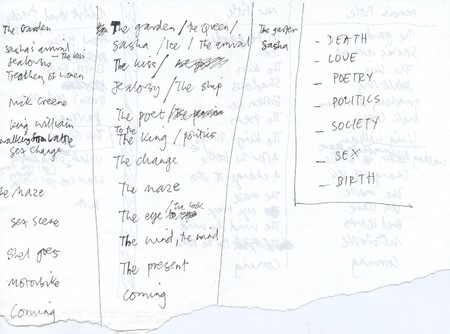 The Garden
sasha's arrival
Jealousy The kiss
Treachery of women
Nick Greene
King William
walking from battle
sex change
The Maze
sex scene
Shel goes
Motorbike
Coming
The garden / the Queen /
Sasha / Ice / The arrival
The kiss /
Jealosy / The ship
The poet /
To the
The King / politics
The change
The maze
The eye / the look
The wind, the mind
The present
Coming
The garden
Sasha
– DEATH
– LOVE
– POETRY
– POLITICS
– SOCIETY
– SEX
– BIRTH